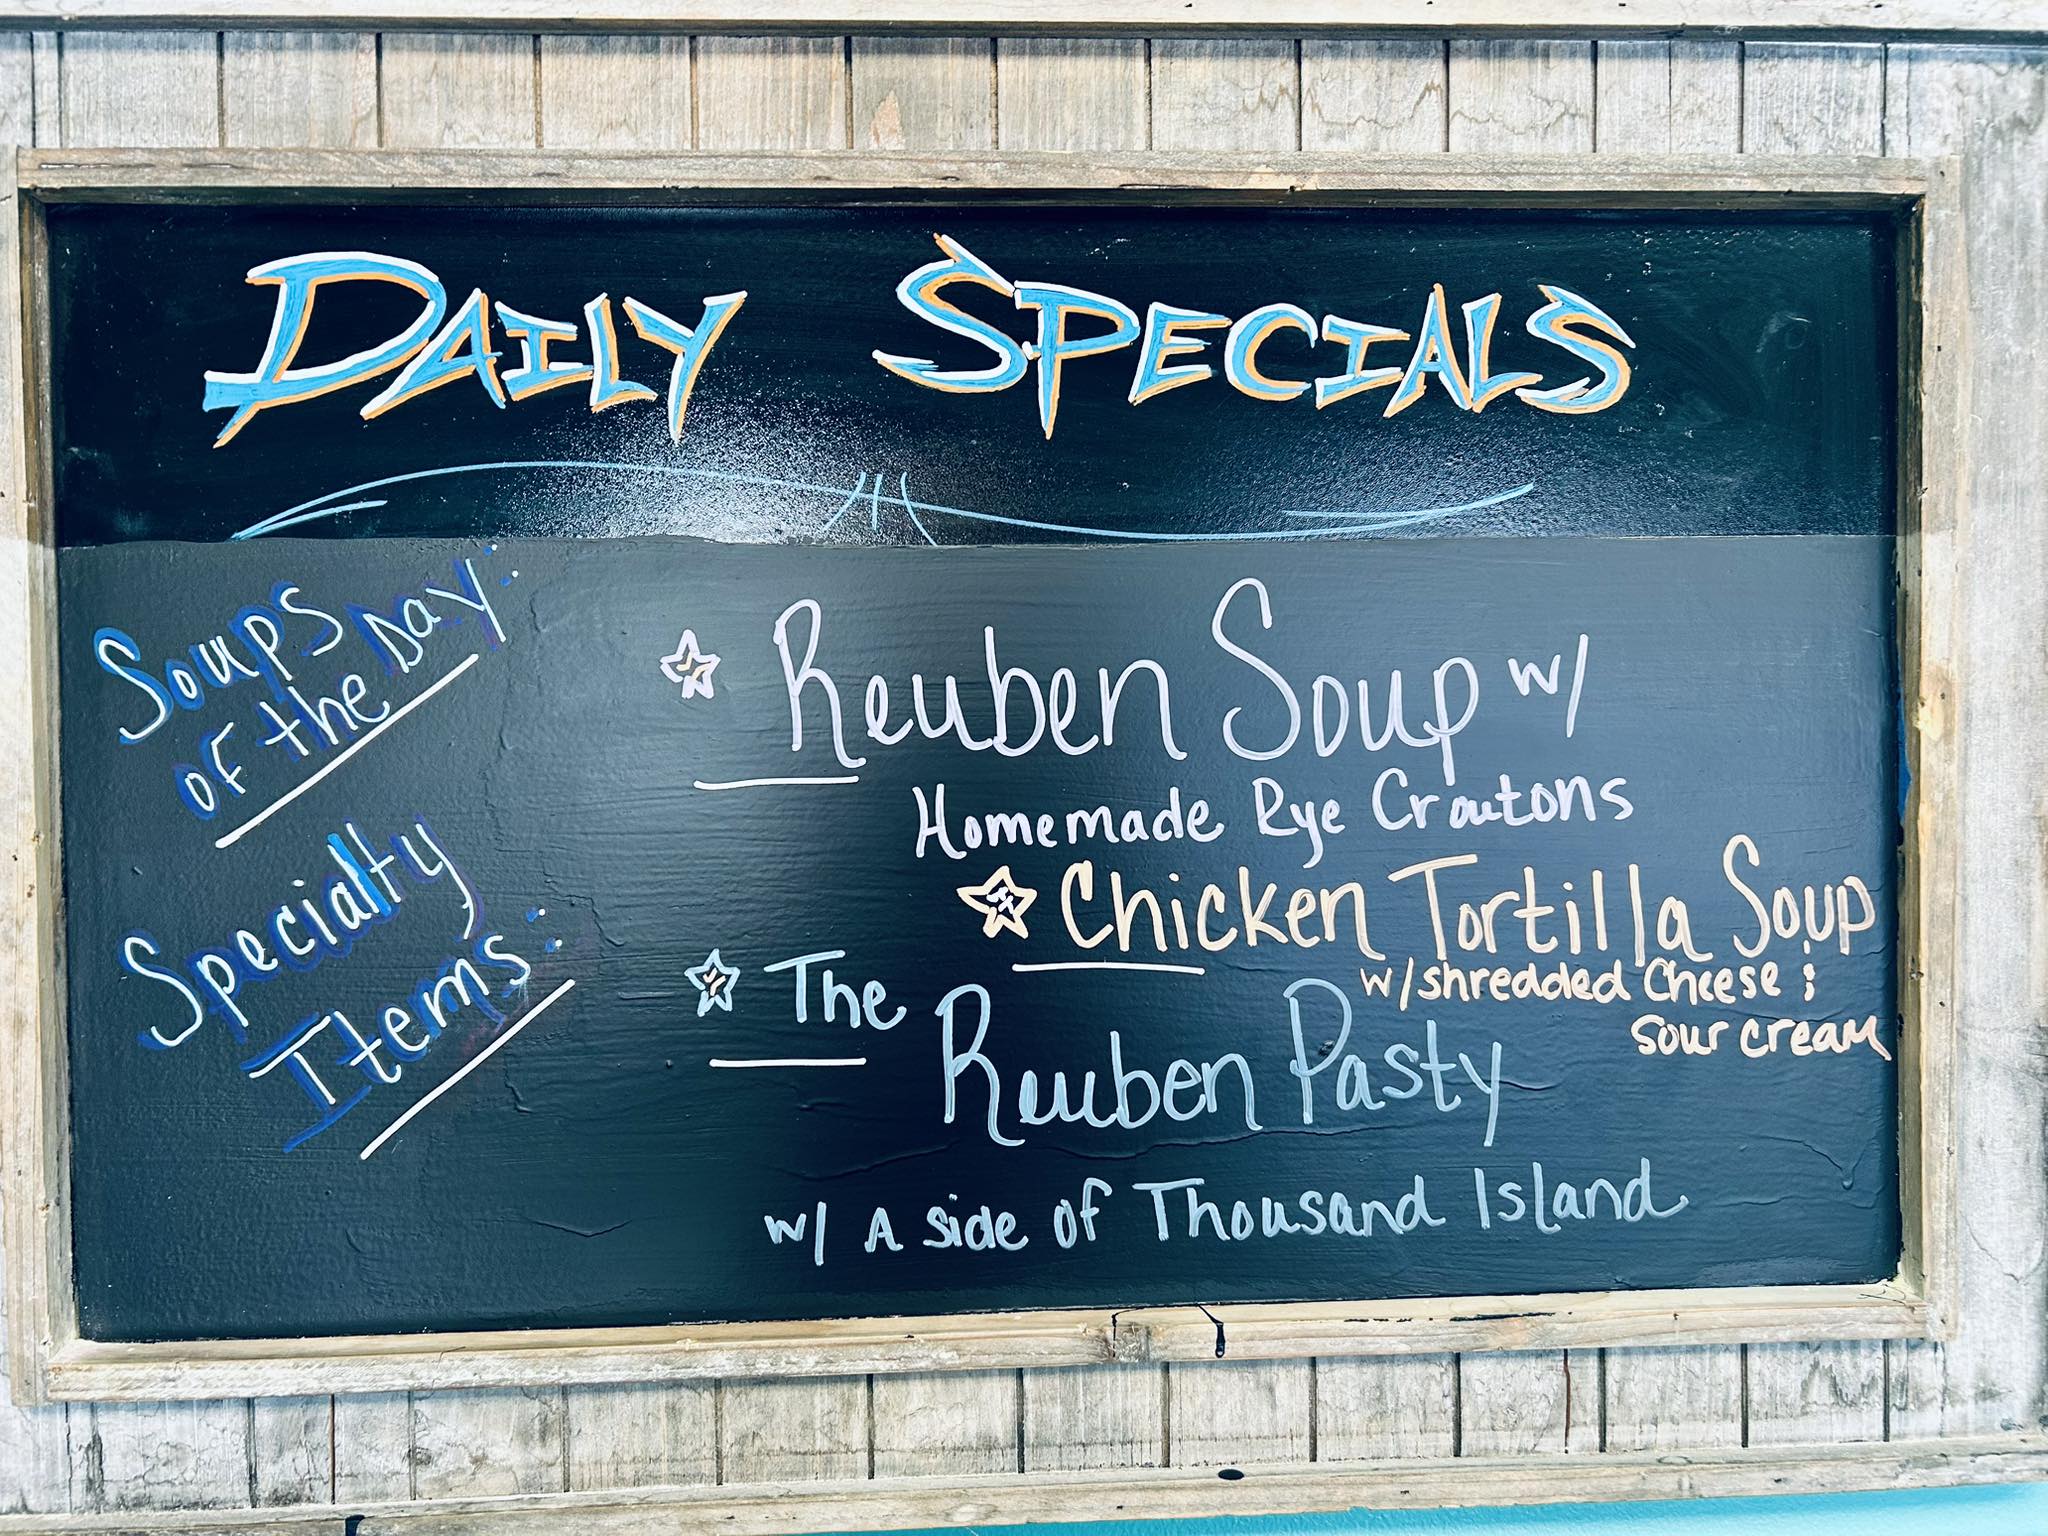 DAILY SPECIALS
Soups
of the Day:
Reuben Soup w/
Homemade Rye Croutons
Chicken Tortilla Soup
w/shredded Cheese &
sour cream
Specialty
Items:
The
Reuben Pasty
w/ A side of Thousand Island